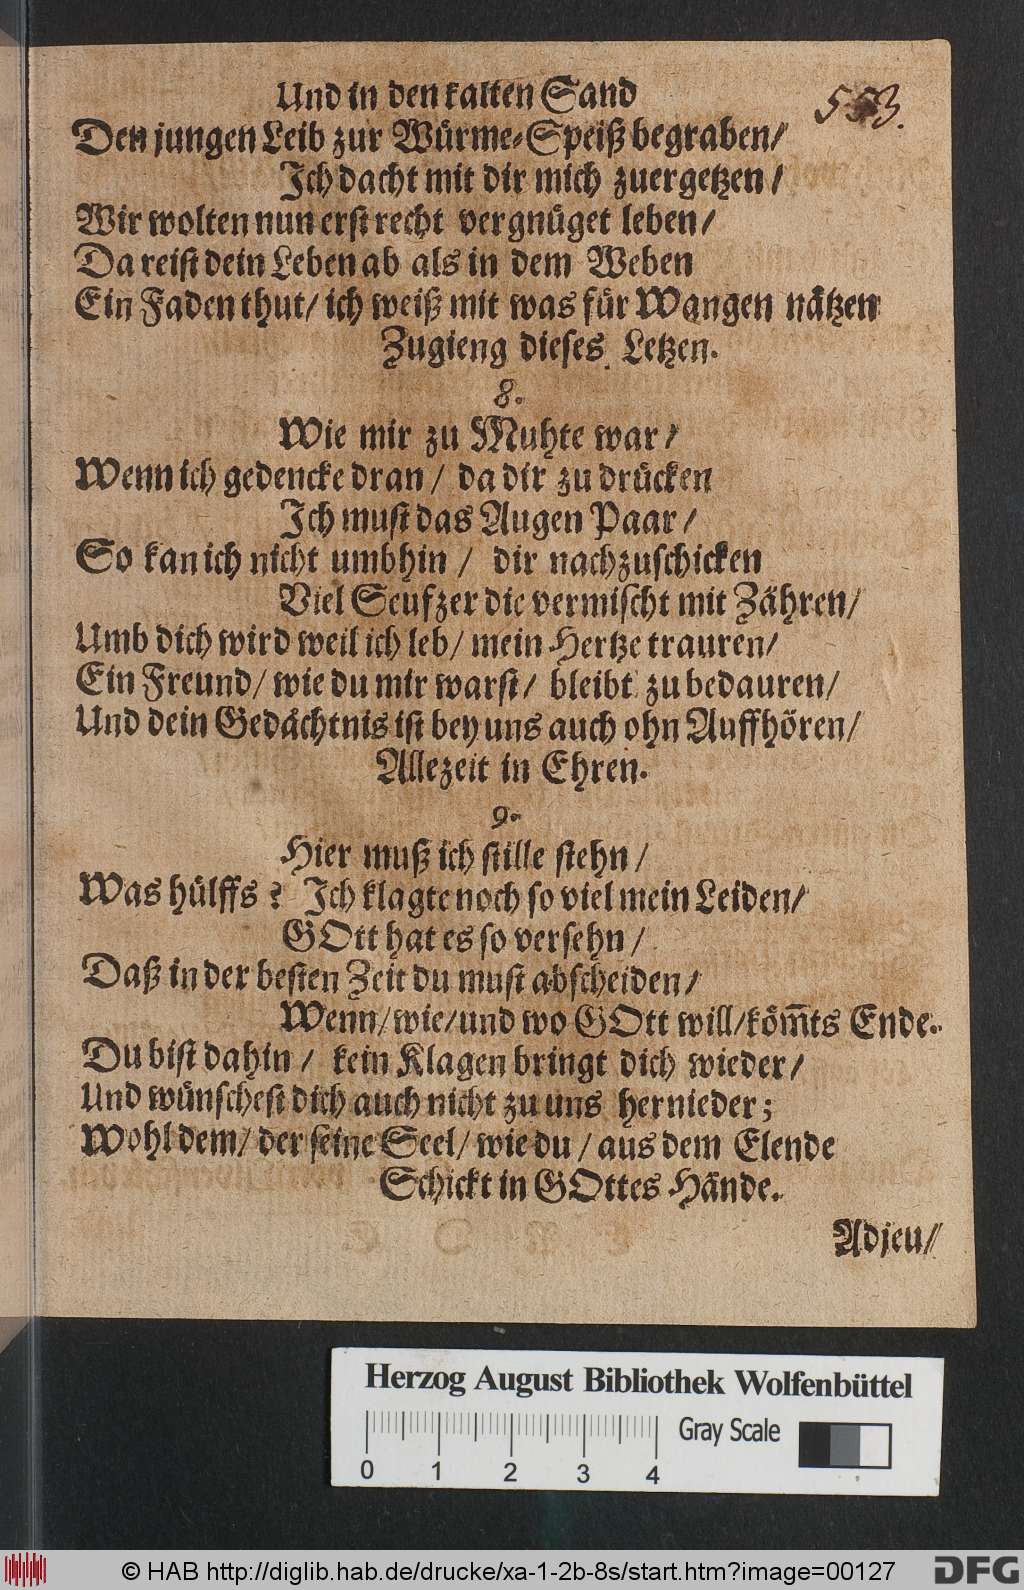 553.
Und in den kalten Sand
Den jungen Leib zur Würme-Speiß begraben/
Ich dacht mit dir mich zuergetzen/
Wir wolten nun erst recht vergnüget leben/
Da reist dein Leben ab als in dem Weben
Ein Faden thut/ ich weiß mit was für Wangen nätzen
Zugieng dieses Letzen.
8.
Wie mir zu Muhte war/
Wenn ich gedencke dran/ da dir zu drücken
Ich must das Augen Paar/
So kan ich nicht umbhin/ dir nachzuschicken
Viel Seufzer die vermischt mit Zähren/
Umb dich wird weil ich leb/ mein Hertze trauren/
Ein Freund/ wie du mir warst/ bleibt zu bedauren/
Und dein Gedächtnis ist bey uns auch ohn Auffhören/
Allezeit in Ehren.
9.
Hier muß ich stille stehn/
Was hülffs? Ich klagte noch so viel mein Leiden/
GOtt hat es so versehn/
Daß in der besten Zeit du must abscheiden/
Wenn/ wie/ und wo GOtt will/ köm̅ts Ende.
Du bist dahin/ kein Klagen bringt dich wieder/
Und wünschest dich auch nicht zu uns hernieder;
Wohl dem/ der seine Seel/ wie du/ aus dem Elende
Schickt in GOttes Hände.
Adjeu/
Herzog August Bibliothek Wolfenbüttel
Gray Scale
0 1 2 3 4
© HAB http://diglib.hab.de/drucke/xa-1-2b-8s/start.htm?image=00127
DFG